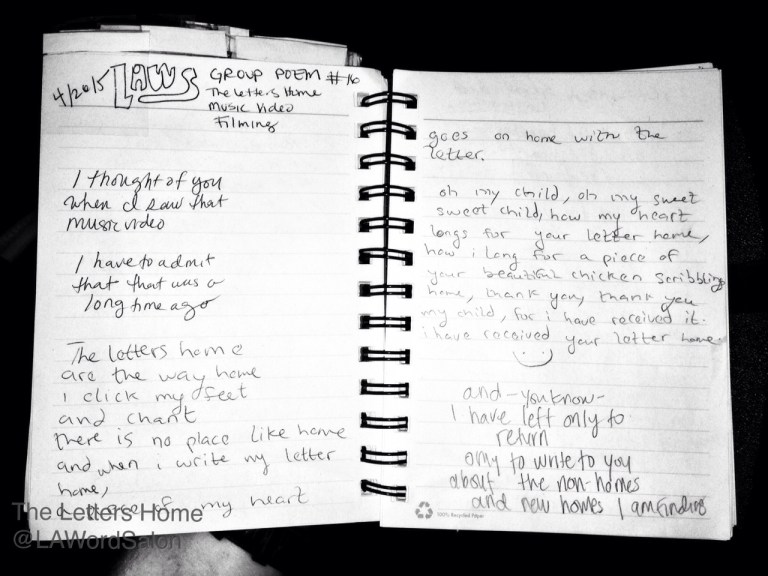 4/2015 LAWS GROUP POEM #16
The Letters Home
Music Video
Filming
I thought of you
when I saw that
music video
I have to admit
that that was a
long time ago
The letters home
are the way home
i click my feet
and chant
there is no place like home
and when i write my letter
home,
a piece of my heart
goes on home with the
letter.
oh my child, oh my sweet
sweet child, how my heart
longs for your letter home,
how i long for a piece of
your beautiful chicken scribbling
home, thank you, thank you
my child, for i have received it.
i have received your letter home
and - you know -
I have left only to
return
only to write to you
about the non-homes
and new homes I am finding
100% Recycled Paper
The Letters Home
@LAWordSalon